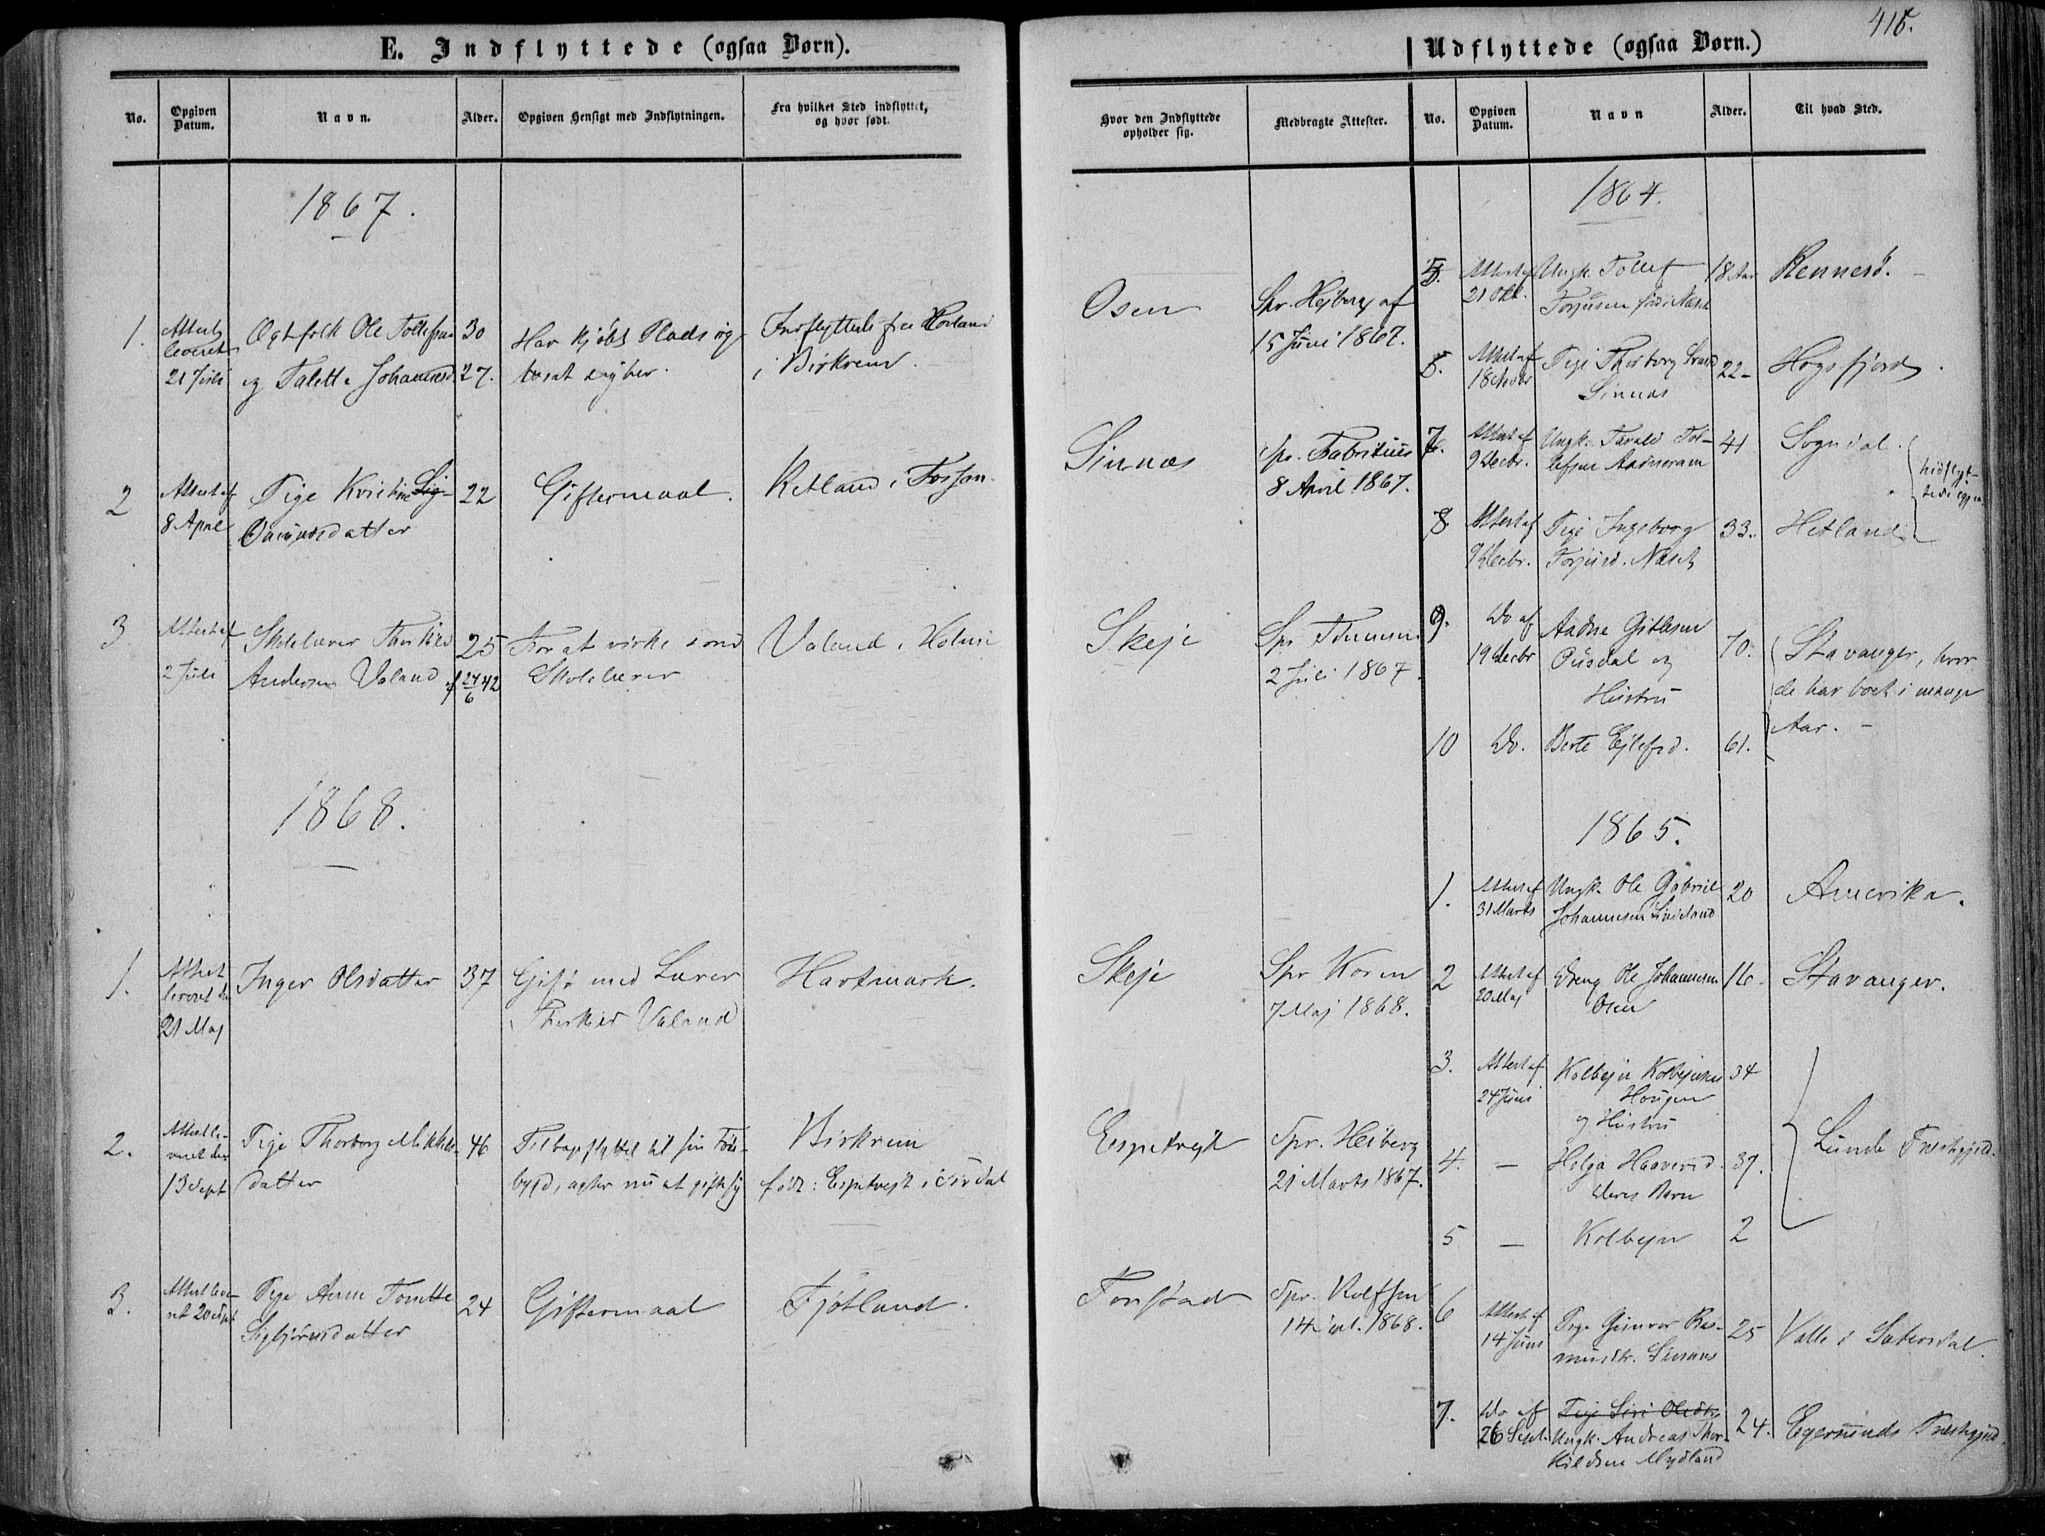 E. Indflyttede (ogsaa Børn).
No.
Opgiven Datum.
Navn.
Alder.
Opgiven Hensigt med Indflytningen.
Fra hvilket Sted indflyttet, og hvor født.
1867.
1.
Attest
leveret
21 Juli
Ægtfolk Ole Tollefsen
og Talette Johannesd.
30
27.
Har kjøbt Plads og
bosat sig her.
Indflyttede fra Hovland
i Birkrem.
2
Attest af
8 April
Pige Kristine Sig-
22
Giftermaal.
Ketland i Fossan.
3
Attest af
2 Juli
Skolelærer Thorkild
Andersen Valand
25
f 24/6 42
For at virke som
Skolelærer
Valand i Holme
1868.
1.
Attest
leveret d.
21 Maj
Inger Olsdatter
37
Gift med Lærer
Thorkild Valand
Hartmark.
2.
Attest le-
veret den
13 Sept
Pige Thorborg Mikkels-
datter
46
Tilbageflyttet til sin Føde-
bygd, agter nu at gifte sig
Birkrem
født: Espetvejt i Sirdal
3.
Attest leve-
ret 20 Sept
Pige Anne Tonette
Sigbjørnsdatter
24
Giftermaal
Fjotland.
416.
Udflyttede (ogsaa Børn.)
Hvor den Indflyttede opholder sig.
Medbragte Attester.
No.
Opgiven Datum.
Navn
Alder.
Til hvad Sted.
Osen
Spr. Hejberg af
15 Juni 1867.
Sinnes
Spr. Fabritius
8 April 1867.
Skeje
Spr
2 Juli 1867.
Skeje
Spr Koren
7 Maj 1868.
Espetvejt
Spr. Heiberg
21 Marts 1867.
Spr. Rolfsen
14 Sept. 1868.
1864.
5.
Attest af
21 Okt.
Ungk. Tollef
Torjusen født Næset
18 Aar
Rennesø.
6.
Attest af
18 Novbr
Pige Thorborg
Sinnes
22
Høgsfjord.
7.
Attest af
9 Decbr.
Ungk. Tarald Tol-
lefsen Aadneram
41
Sogndal.
hidflyt-
tede igjen
8
Attest af
9 Decbr.
Pige Ingeborg
Torjusd. Næset
33.
Hetland
9.
Do af
19 Decbr
Aadne Gitlesen
Ousdal og
Hustru
70.
Stavanger, hvor
de har boet i mange
Aar.
10
Do.
Berte Ejlefsd.
61.
1865.
1.
Attest af
31 Marts
Ungk. Ole Gabriel
Johannesen Lindeland
20
Amerika.
2
Attest af
20 Maj
Dreng Ole Johannesen
Osen
16.
Stavanger.
3.
Attest af
24 Juni
Kolbejn Kolbejnsen
Hougen
og Hustru
34
4.
—
Helga Haaversd.
deres Barn
37.
Lunde Præstegjeld.
5
—
Kolbejn
2
6
Attest af
14 Juni
Pige Gunvor Ras-
musdtr. Sinnes
25
Valle i Sætersdal.
7.
Do af
26 Sept.
Pige Siri Olsdtr
Ungk. Andreas Thor-
kildsen Mydland
24.
Egersunds Præstegjeld.